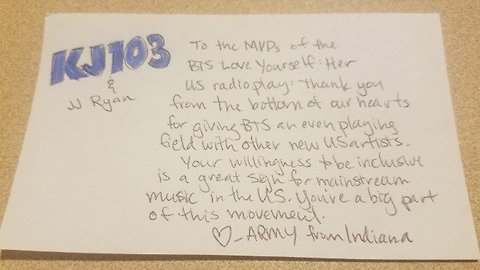 KJ103
&
JJ Ryan
To the MVPs of the
BTS Love Yourself: Her
US radioplay: Thank you
from the bottom of our hearts
for giving BTS an even playing
field with other new US artists.
Your willingness to be inclusive
is a great sign for mainstream
music in the US. You're a big part
of this movement.
♡-ARMY from Indiana